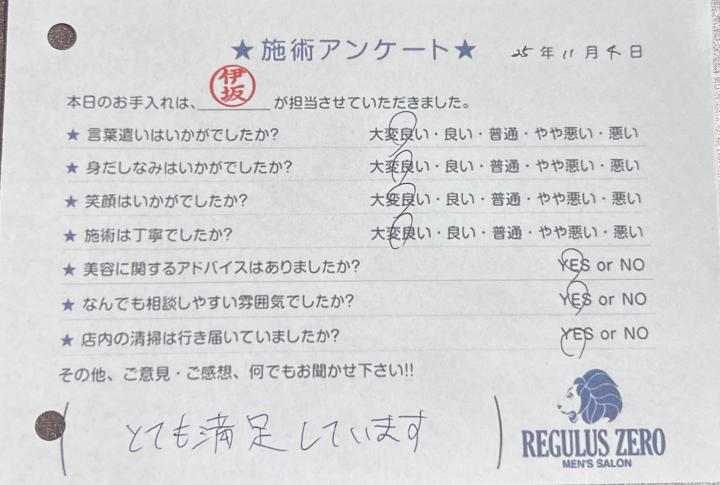 ★施術アンケート★ 25年11月4日
本日のお手入れは、伊坂が担当させていただきました。
★ 言葉遣いはいかがでしたか? 大変良い・良い・普通・やや悪い・悪い
★ 身だしなみはいかがでしたか? 大変良い・良い・普通・やや悪い・悪い
★ 笑顔はいかがでしたか? 大変良い・良い・普通・やや悪い・悪い
★ 施術は丁寧でしたか? 大変良い・良い・普通・やや悪い・悪い
★ 美容に関するアドバイスはありましたか? YES or NO
★ なんでも相談しやすい雰囲気でしたか? YES or NO
★ 店内の清掃は行き届いていましたか? YES or NO
その他、ご意見・ご感想、何でもお聞かせ下さい!!
とても満足しています
REGULUS ZERO
MEN'S SALON